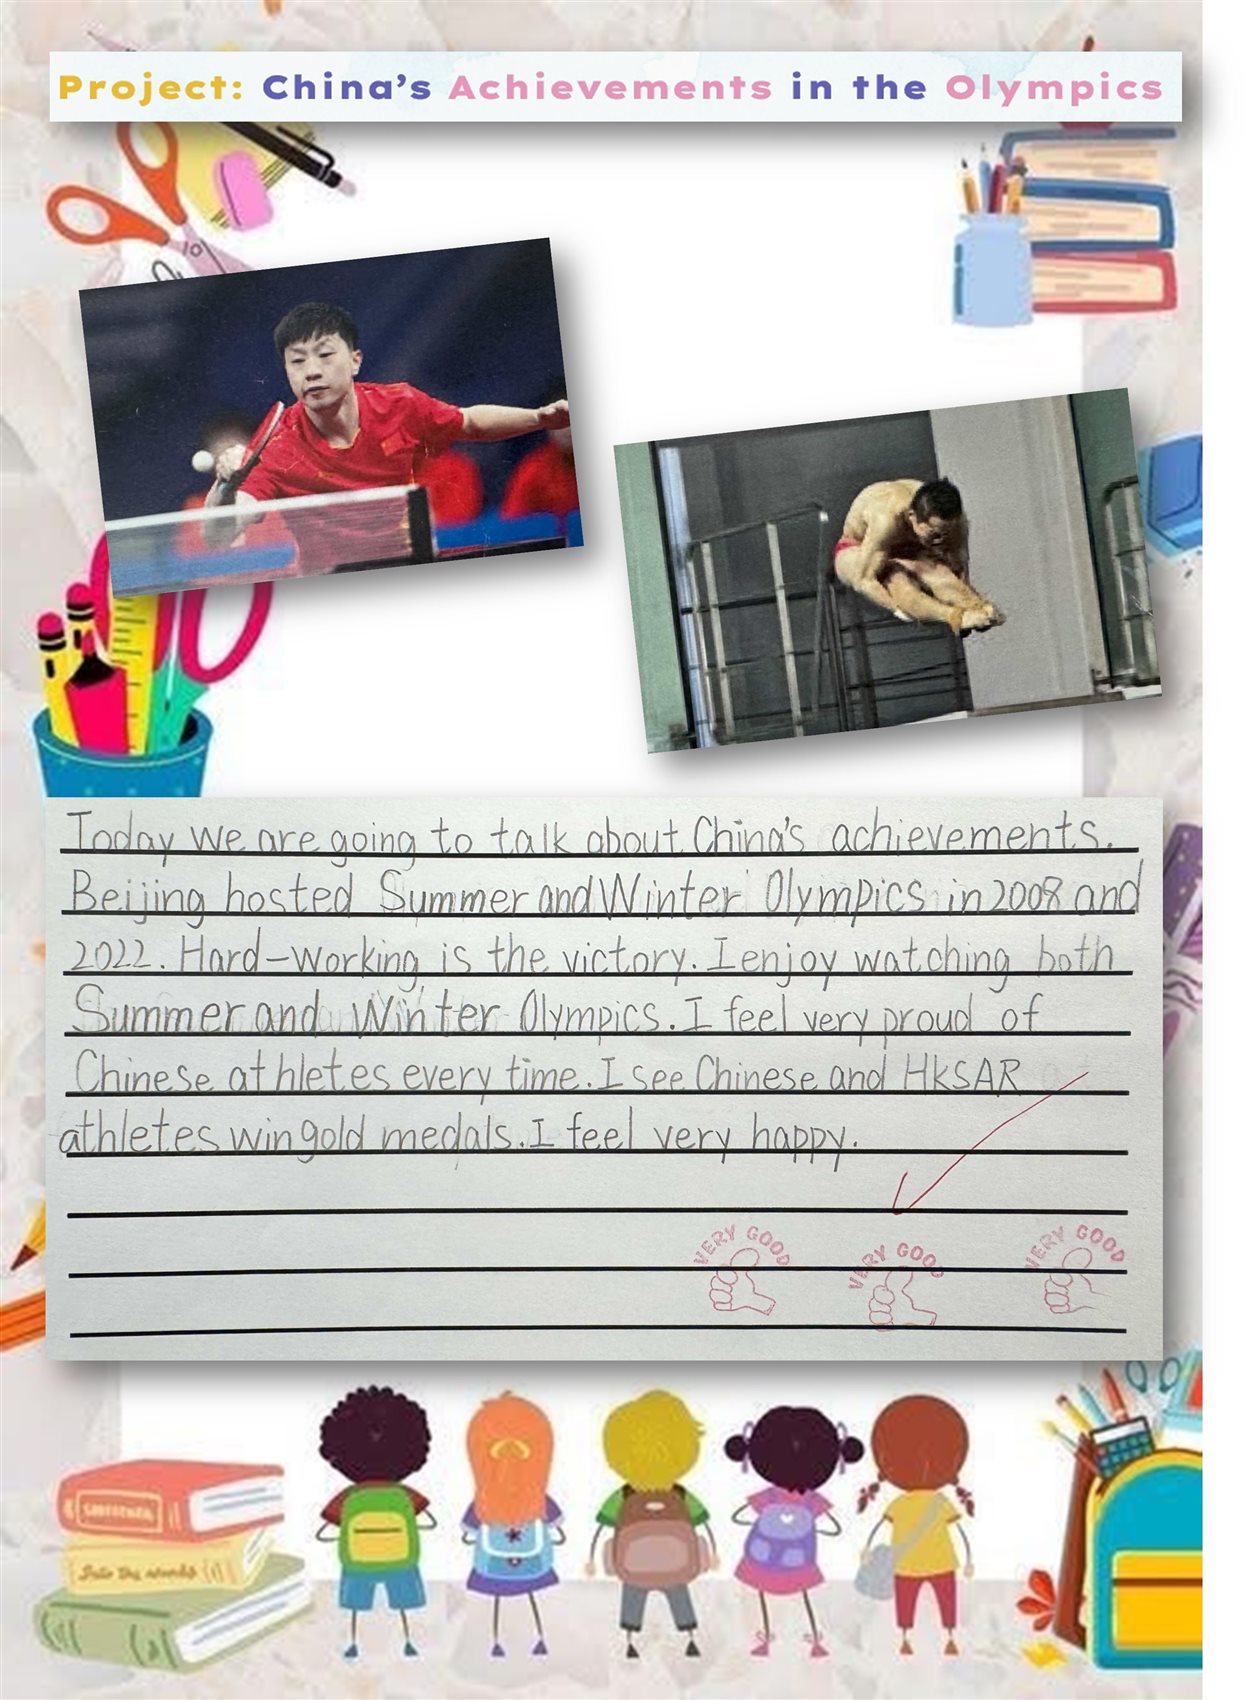 Project: China's Achievements in the Olympics
Today we are going to talk about China's achievements.
Beijing hosted Summer and Winter Olympics in 2008 and
2022. Hard-working is the victory. I enjoy watching both
Summer and Winter Olympics. I feel very proud of
Chinese athletes every time. I see Chinese and HKSAR
athletes win gold medals. I feel very happy.
VERY GOOD
VERY GOOD
VERY GOOD